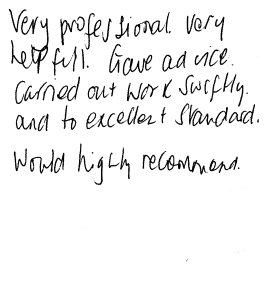 Very professional very
helpfull. Gave advice.
Carried out work swiftly.
and to excellent standard.
Would highly recommend.